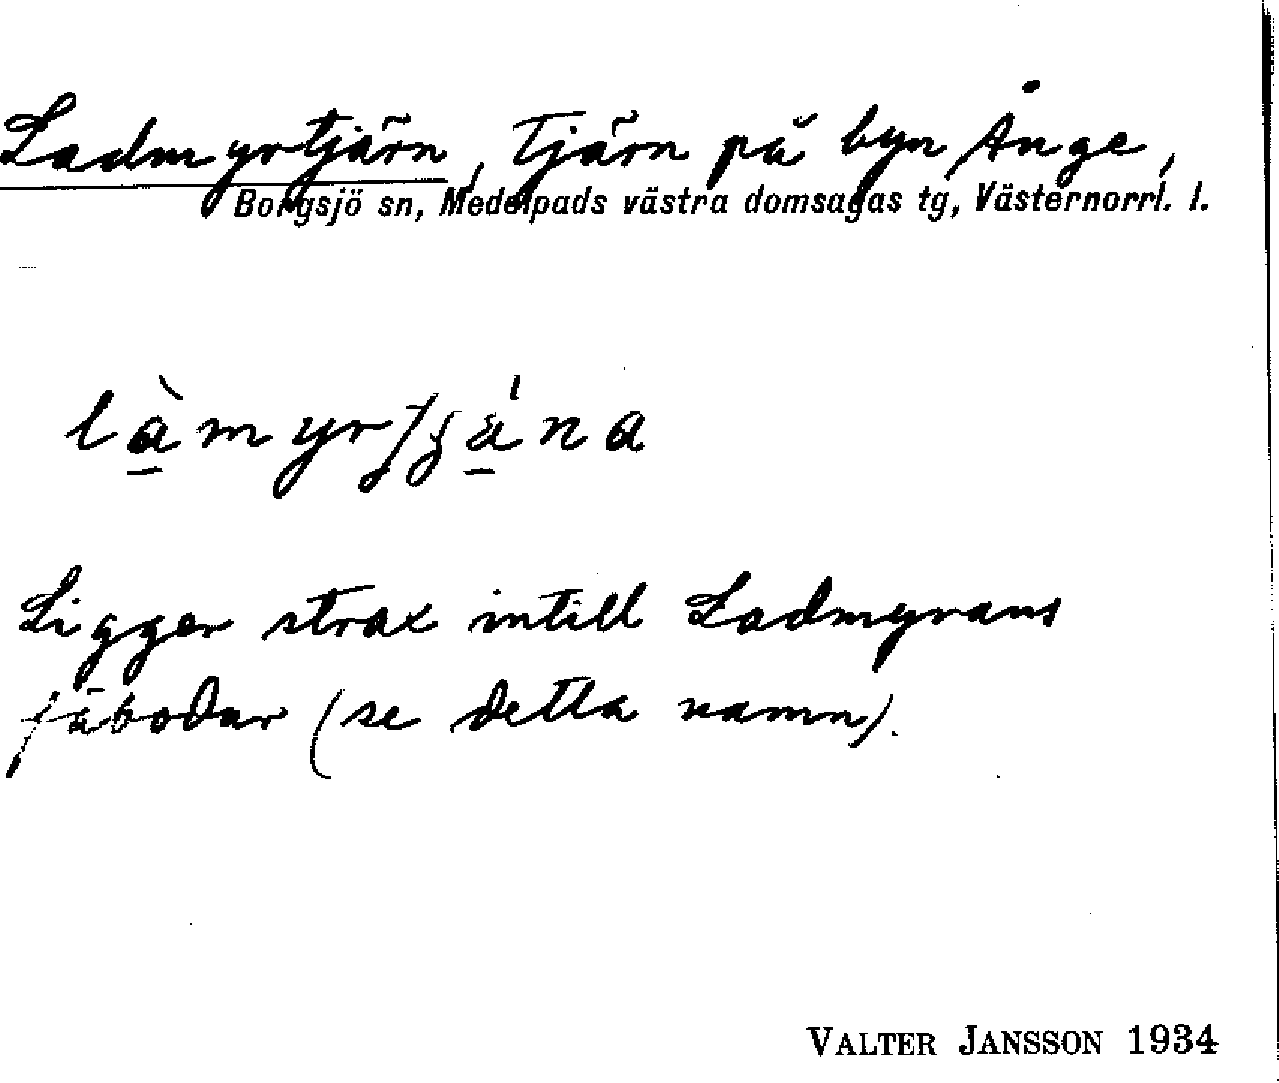 Ladmyrtjärn, Tjärn på byn Ånge,
Borgsjö sn, Medelpads västra domsagas tg, Västernorrl. l.
Ligger strax intill Ladmyrans
fäbodar (se detta namn).
VALTER JANSSON 1934